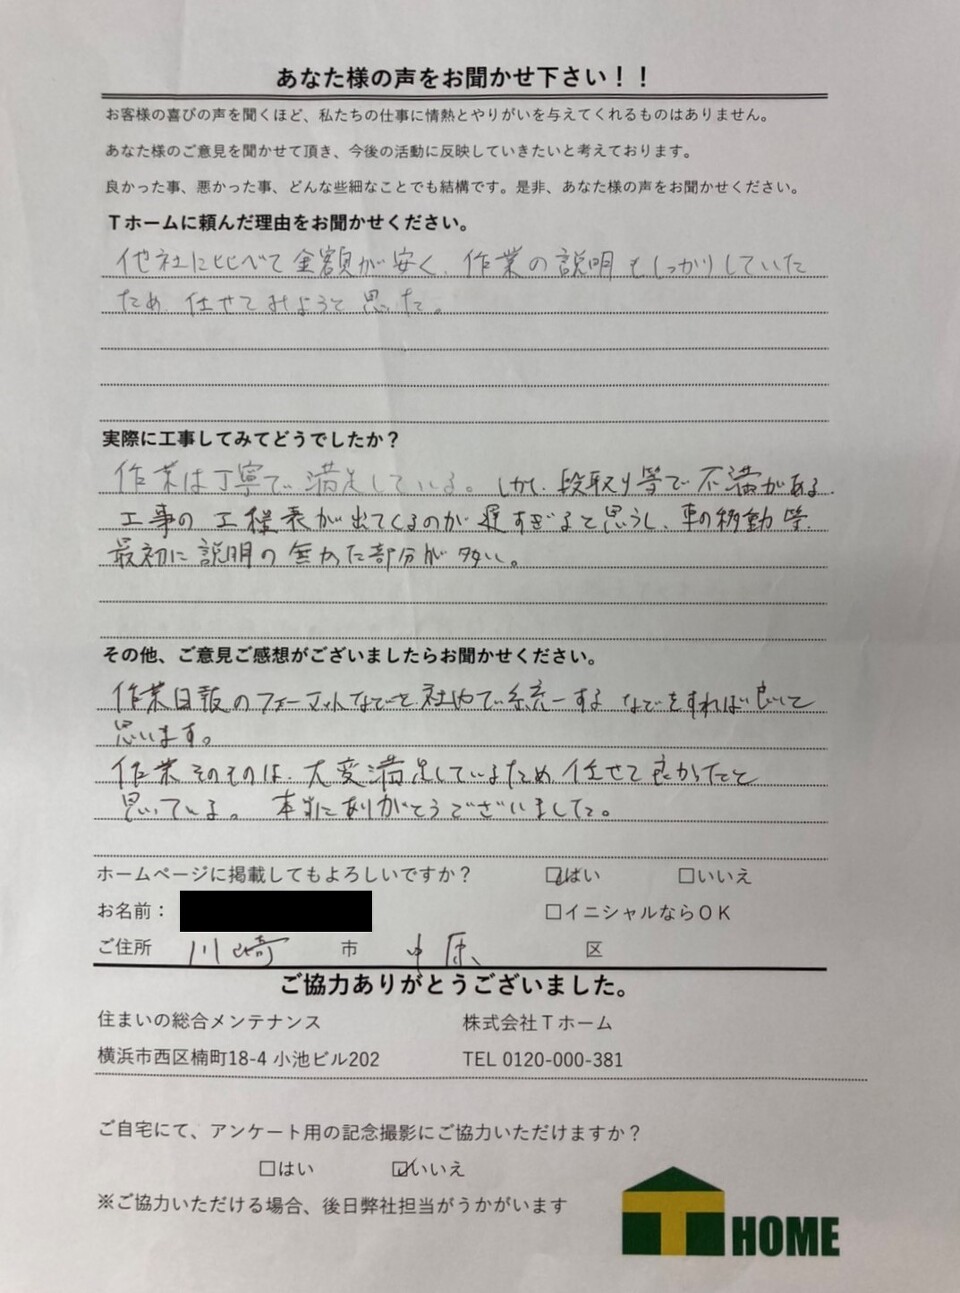 あなた様の声をお聞かせ下さい！！
お客様の喜びの声を聞くほど、私たちの仕事に情熱とやりがいを与えてくれるものはありません。
あなた様のご意見を聞かせて頂き、今後の活動に反映していきたいと考えております。
良かった事、悪かった事、どんな些細なことでも結構です。是非、あなた様の声をお聞かせください。
Ｔホームに頼んだ理由をお聞かせください。
他社に比べて金額が安く、作業の説明もしっかりしていた
ため 任せてみようと思った。
実際に工事してみてどうでしたか？
作業は丁寧で満足している。しかし、段取り等で不満がある。
工事の工程表が出てくるのが遅すぎると思うし、車の移動等、
最初に説明の無かった部分が多い。
その他、ご意見ご感想がございましたらお聞かせください。
作業日報のフォーマットなどを社内で統一するなどをすれば良いと
思います。
作業そのものは、大変満足しているため 任せて良かったと
思っている。本当にありがとうございました。
ホームページに掲載してもよろしいですか？ ☑はい □いいえ
お名前： □イニシャルならＯＫ
ご住所 川崎 市 中原 区
ご協力ありがとうございました。
住まいの総合メンテナンス 株式会社Ｔホーム
横浜市西区楠町18-4 小池ビル202 TEL 0120-000-381
ご自宅にて、アンケート用の記念撮影にご協力いただけますか？
□はい ☑いいえ
※ご協力いただける場合、後日弊社担当がうかがいます
T HOME